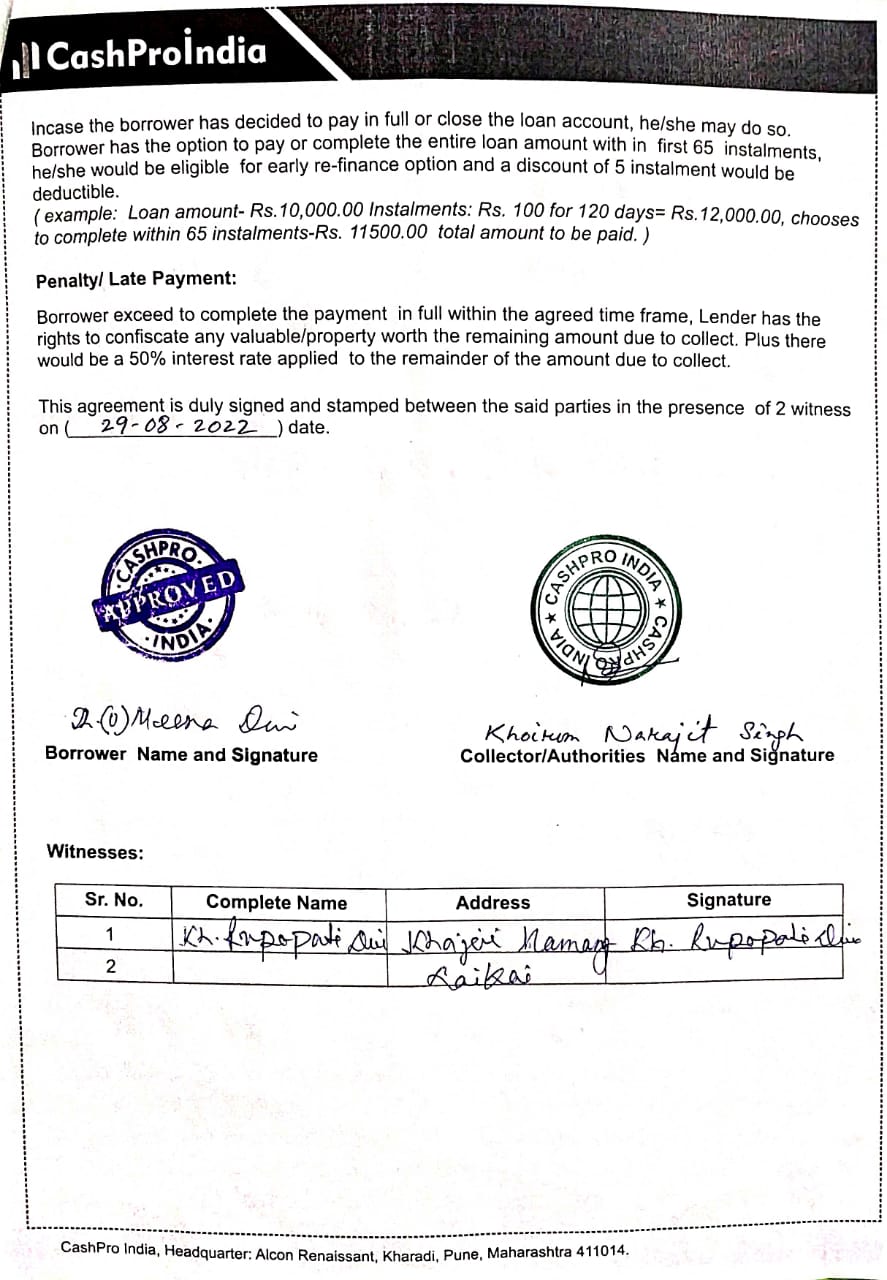 CashProIndia
Incase the borrower has decided to pay in full or close the loan account, he/she may do so.
Borrower has the option to pay or complete the entire loan amount with in first 65 instalments,
he/she would be eligible for early re-finance option and a discount of 5 instalment would be
deductible.
( example: Loan amount- Rs.10,000.00 Instalments: Rs. 100 for 120 days= Rs.12,000.00, chooses
to complete within 65 instalments-Rs. 11500.00 total amount to be paid. )
Penalty/ Late Payment:
Borrower exceed to complete the payment in full within the agreed time frame, Lender has the
rights to confiscate any valuable/property worth the remaining amount due to collect. Plus there
would be a 50% interest rate applied to the remainder of the amount due to collect.
This agreement is duly signed and stamped between the said parties in the presence of 2 witness
on ( 29-08-2022 ) date.
CASHPRO
APPROVED
INDIA
CASHPRO INDIA ★ CASHPRO INDIA ★
(O) Meena Devi
Khoirom Narajit Singh
Borrower Name and Signature
Collector/Authorities Name and Signature
Witnesses:
Sr. No. Complete Name Address Signature
1 Kh. Rupopati Devi Khajeri Mamang Kh. Rupopati Devi
2 Laikai
CashPro India, Headquarter: Alcon Renaissant, Kharadi, Pune, Maharashtra 411014.